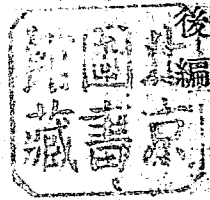 後編
北京
圖書
館藏